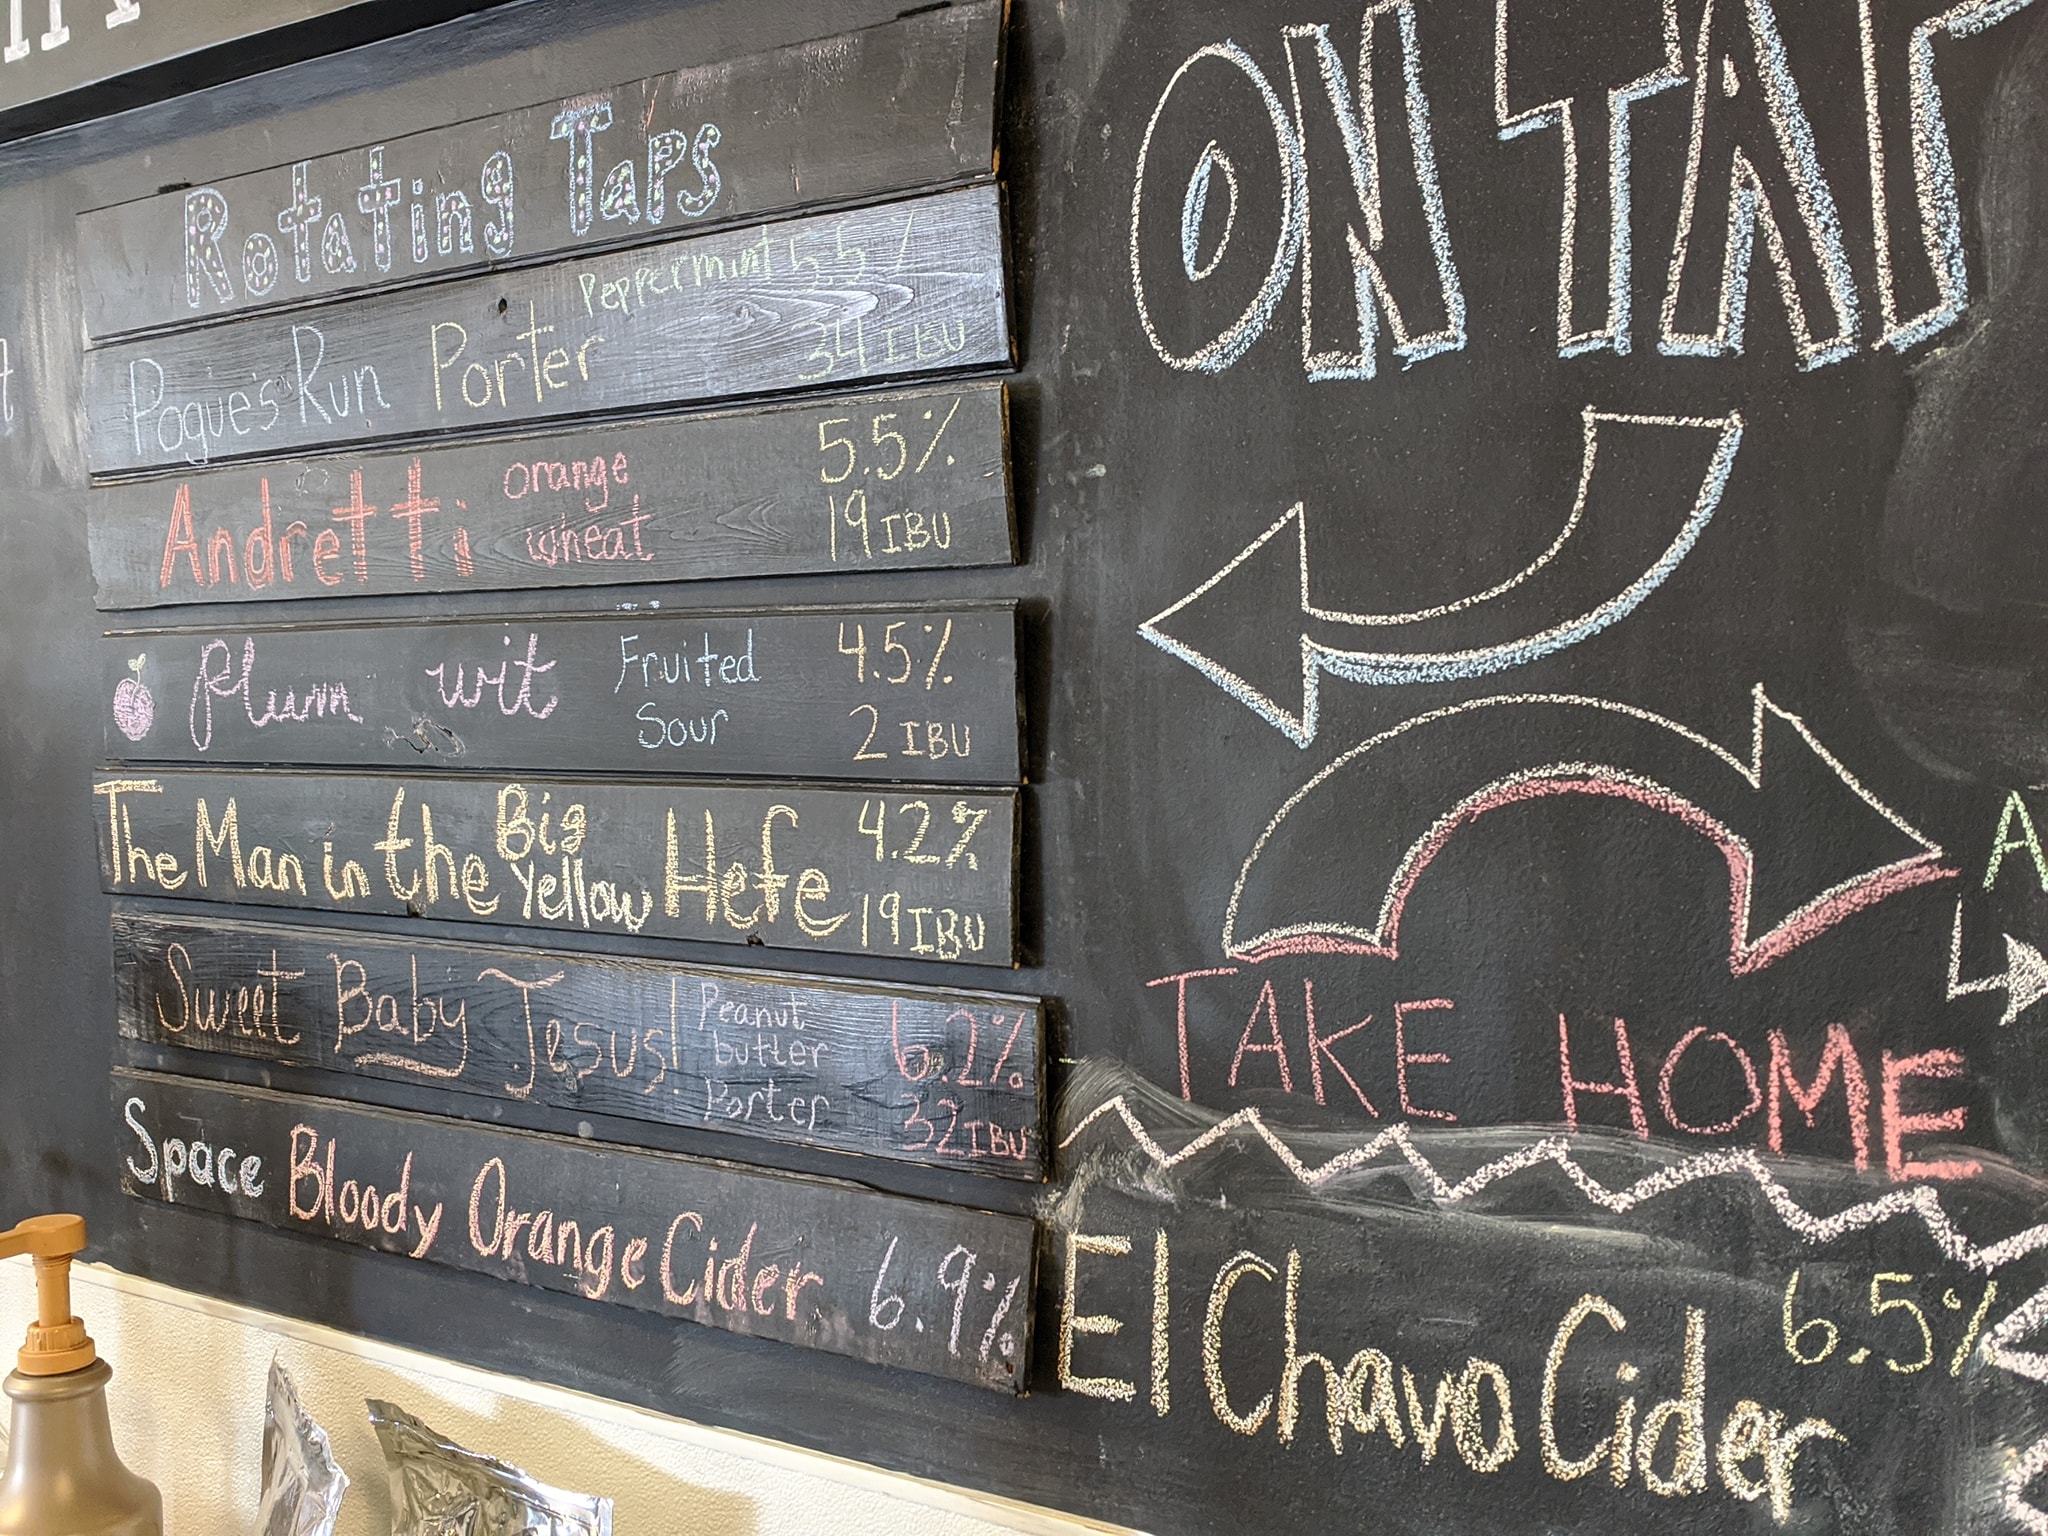 Rotating Taps
Peppermint 5.5%
Pogue's Run Porter 34 IBU
Andretti orange wheat 5.5%
19 IBU
Plum wit Fruited Sour 4.5%
2 IBU
The Man in the Big Yellow Hefe 4.2%
19 IBU
Sweet Baby Jesus! Peanut butter Porter 6.2%
32 IBU
Space Bloody Orange Cider 6.9%
ON TAP
TAKE HOME
El Chavo Cider 6.5%